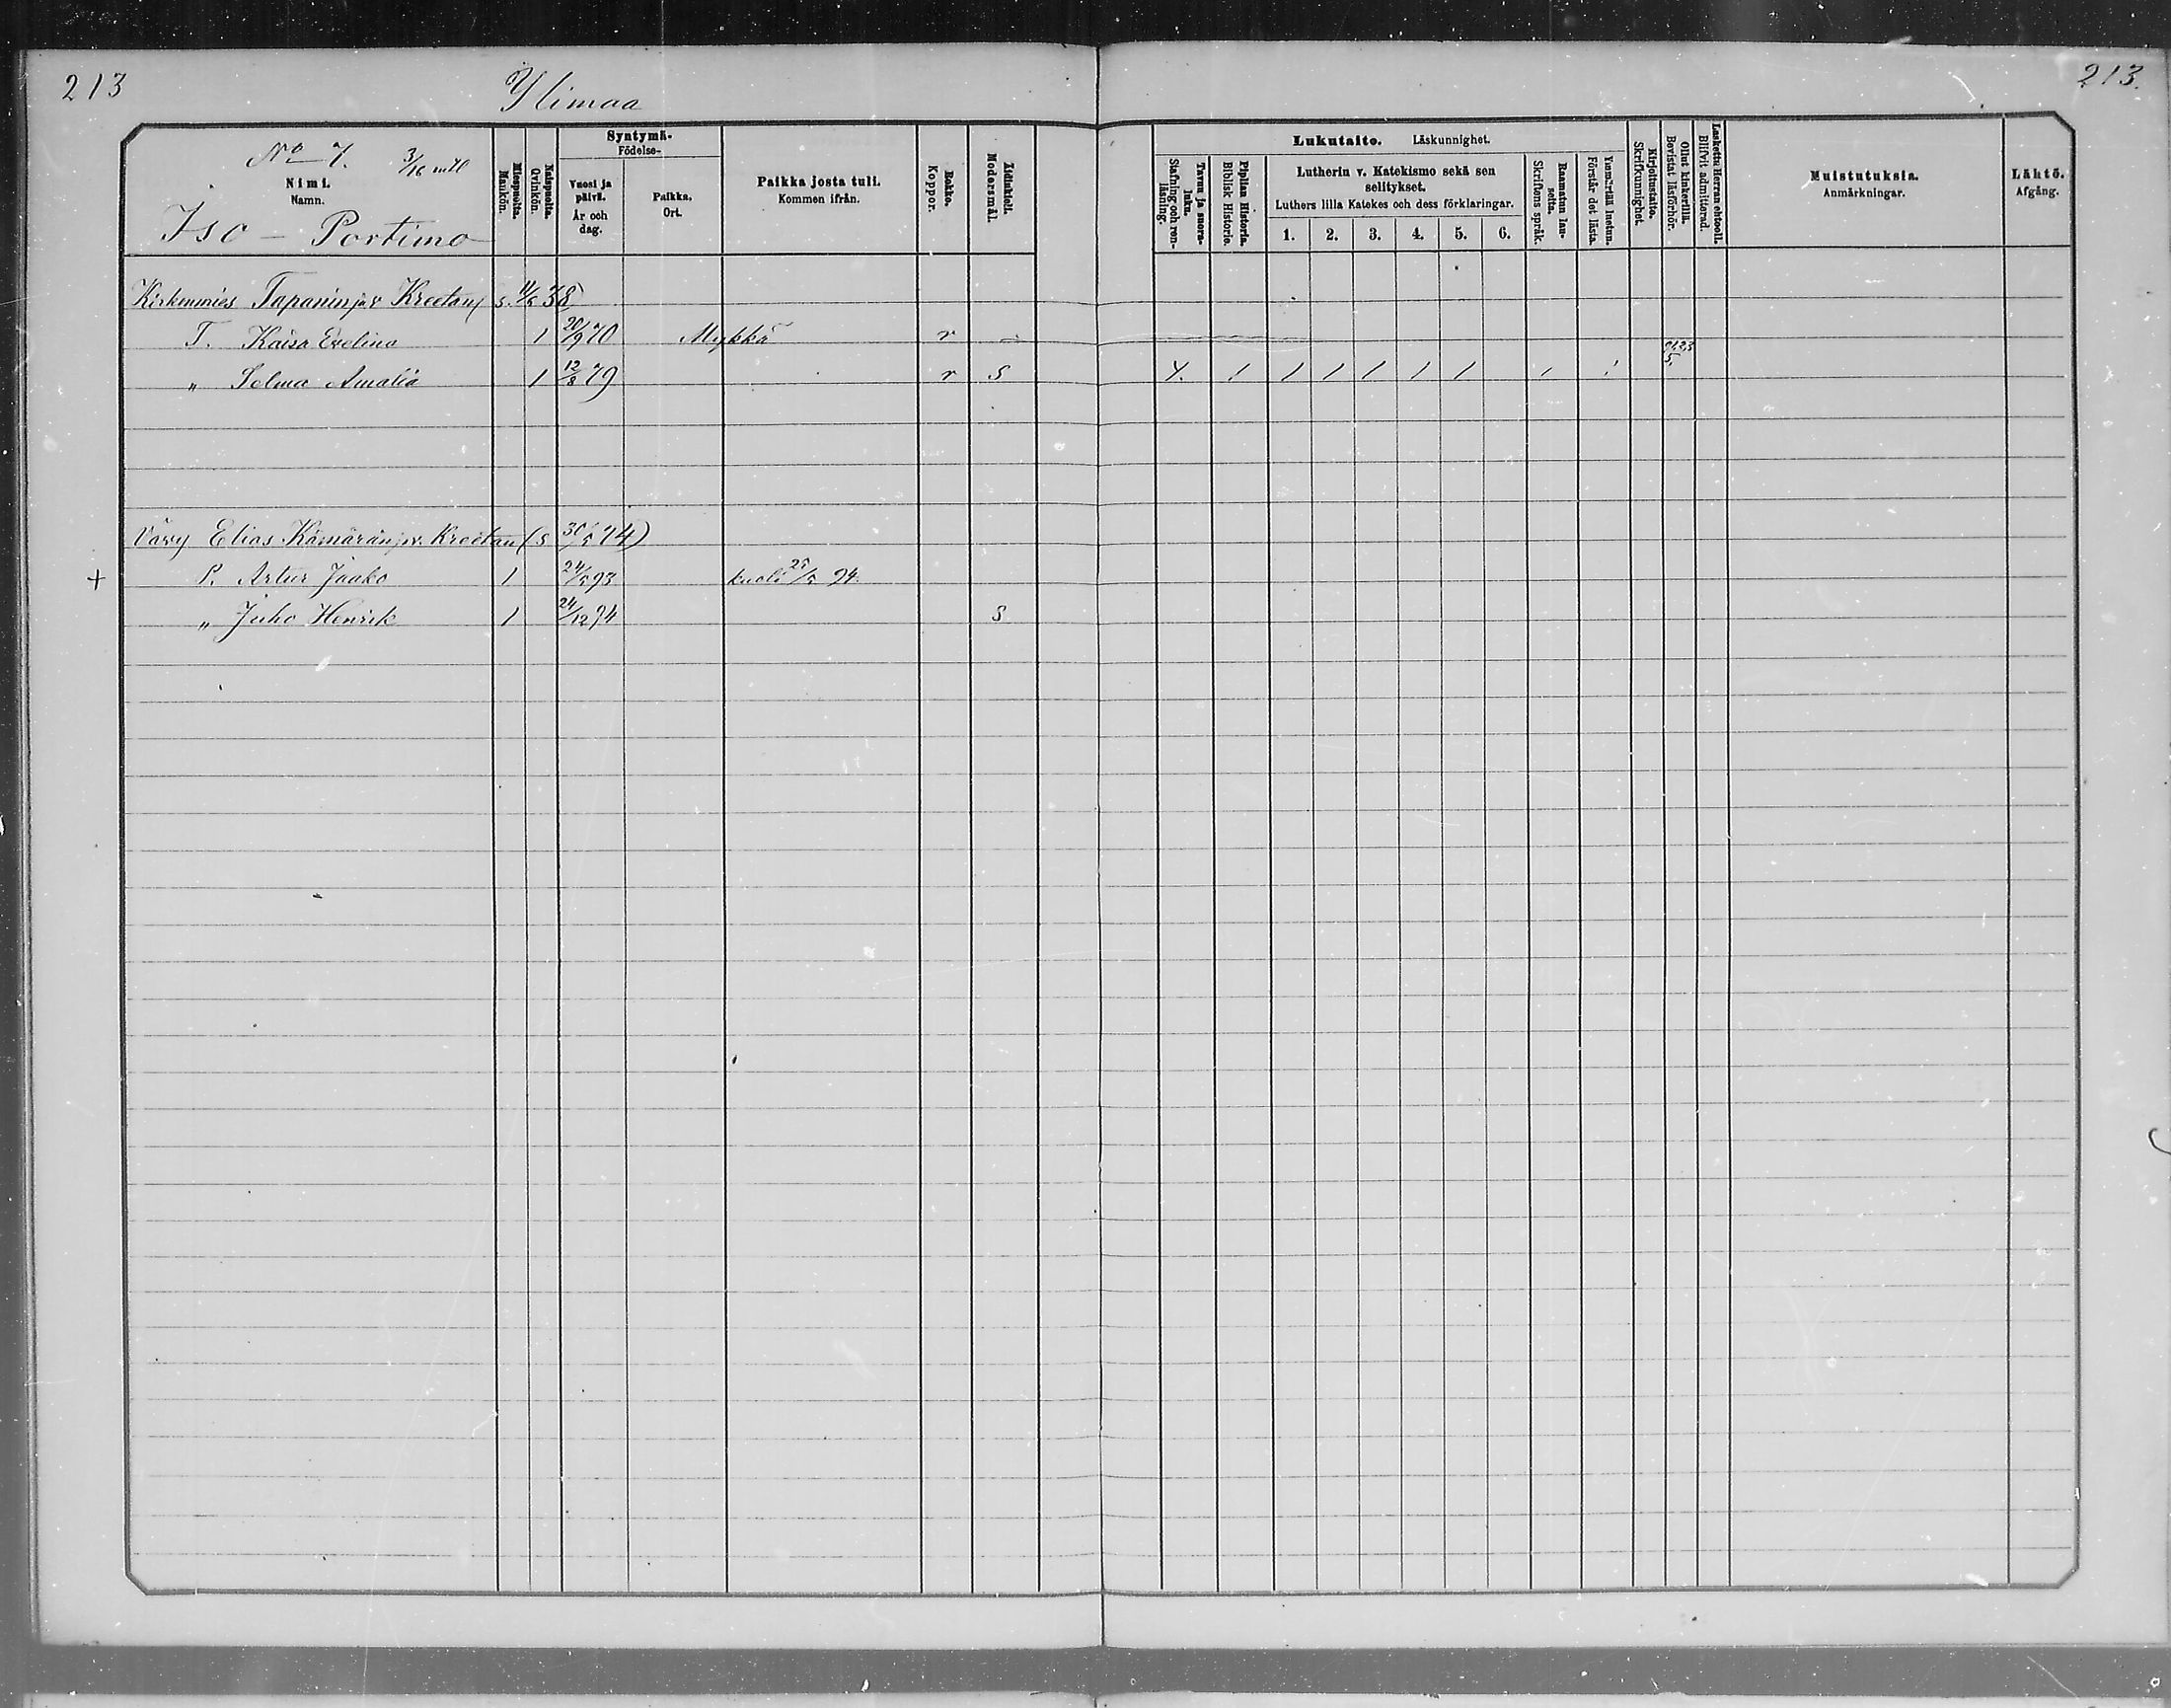 213 Ylimaa 213.
No 7. 3/16 mtl
Nimi.
Namn.
Iso - Portimo
Miespuolta.
Mankön.
Naispuolta.
Qvinkön.
Syntymä-
Födelse-
Vuosi ja päivä.
År och dag.
Paikka.
Ort.
Paikka josta tuli.
Kommen ifrån.
Rokko.
Koppor.
Äidinkieli.
Modersmål.
Lukutaito. Läskunnighet.
Tavuu ja suora-luku.
Stafning och ren-läsning.
Piplian Historia.
Biblisk Historie.
Lutherin v. Katekismo sekä sen
selitykset.
Luthers lilla Katekes och dess förklaringar.
1. 2. 3. 4. 5. 6.
Raamatun lau-seita.
Skriftens språk.
Ymmärtää luetun.
Förstår det lästa.
Kirjoitustaito.
Skrifkunnighet.
Ollut kinkerillä.
Bevistat läsförhör.
Laskettu Herran ehtooll.
Blifvit admitterad.
Muistutuksia.
Anmärkningar.
Lähtö.
Afgång.
Kirkenmies Tapanin ja v Kreetan s. 11/6 38
T. Kaisa Evelina 1 20/9 70 Mykkä r -
" Selma Amalia 1 12/8 79 r S 4. 1 1 1 1 1 1 1 1
Vävy Elias Kämärän ja v. Kreetan (s 30/5 74)
+ P. Artur Jaako 1 24/5 93 kuoli 25/5 94.
" Juho Henrik 1 24/12 94 S